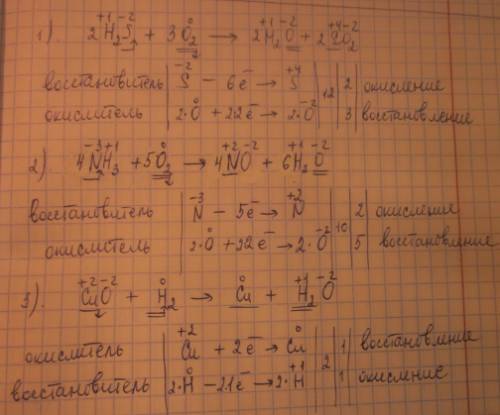 1) 2H₂⁺¹S⁻² + 3O₂⁰ → 2H₂⁺¹O⁻² + 2S⁺⁴O₂⁻²
восстановитель | S⁻² - 6e⁻ → S⁺⁴ | 12 | 2 | окисление
окислитель | 2·O⁰ + 2·2e⁻ → 2·O⁻² | | 3 | восстановление
2) 4N⁻³H₃⁺¹ + 5O₂⁰ → 4N⁺²O⁻² + 6H₂⁺¹O⁻²
восстановитель | N⁻³ - 5e⁻ → N⁺² | 10 | 2 | окисление
окислитель | 2·O⁰ + 2·2e⁻ → 2·O⁻² | | 5 | восстановление
3) Cu⁺²O⁻² + H₂⁰ → Cu⁰ + H₂⁺¹O⁻²
окислитель | Cu⁺² + 2e⁻ → Cu⁰ | 2 | 1 | восстановление
восстановитель | 2·H⁰ - 2·1e⁻ → 2·H⁺¹ | | 1 | окисление